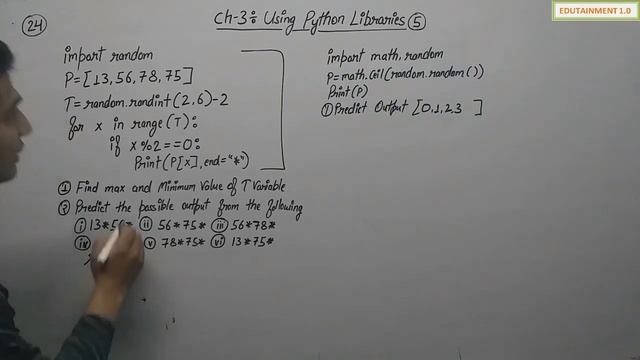 24
Ch-3: Using Python Libraries 5
EDUTAINMENT 1.0
import random
P=[13,56,78,75]
T=random.randint(2,6)-2
for x in range(T):
if x%2==0:
Print(P[x],end="*")
1 Find max and Minimum Value of T Variable
2 Predict the possible output from the following
i 13* ii 56*75* iii 56*78*
iv v 78*75* vi 13*75*
import math,random
P=math.Ceil(random.random())
Print(P)
1 Predict Output [0,1,2,3 ]